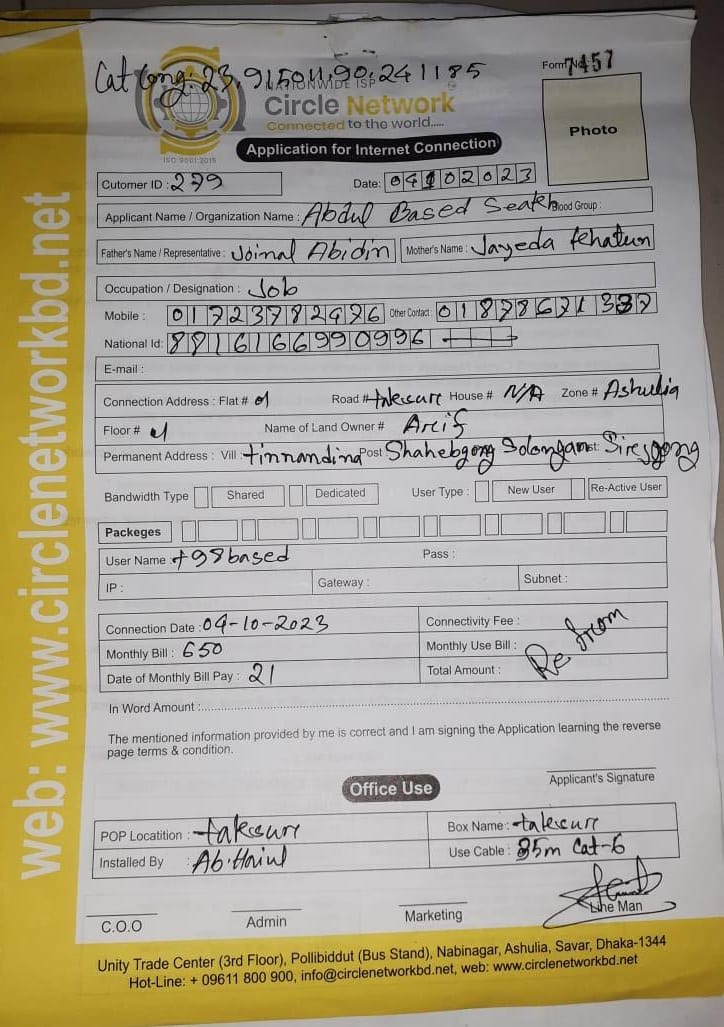 Cat long: 23.915011,90.241185
Form No. 7457
NATIONWIDE ISP
Circle Network
Connected to the world.....
ISO 9001:2015
Photo
Application for Internet Connection
Cutomer ID : 279
Date: 04102023
Applicant Name / Organization Name : Abdul Based Seakh Blood Group :
Father's Name / Representative : Joinal Abidin Mother's Name : Jayeda Khatun
Occupation / Designation : Job
Mobile : 01723782476 Other Contact : 018786713
National Id: 8816166990996
E-mail :
Connection Address : Flat # Road # takesure House # N/A Zone # Ashulia
Floor # Name of Land Owner # Arif
Permanent Address : Vill : tinnandina Post Shahebgong Solongam Dist: Sirajgong
Bandwidth Type Shared Dedicated User Type : New User Re-Active User
Packeges
User Name : t98based Pass :
IP : Gateway : Subnet :
Connection Date : 04-10-2023 Connectivity Fee :
Monthly Bill : 650 Monthly Use Bill :
Date of Monthly Bill Pay : 21 Total Amount :
Re from
In Word Amount :
The mentioned information provided by me is correct and I am signing the Application learning the reverse
page terms & condition.
Applicant's Signature
Office Use
POP Locatition : takesure Box Name : takesure
Installed By : Ab. Haiul Use Cable : 35m Cat-6
C.O.O Admin Marketing Line Man
Unity Trade Center (3rd Floor), Pollibiddut (Bus Stand), Nabinagar, Ashulia, Savar, Dhaka-1344
Hot-Line: + 09611 800 900, info@circlenetworkbd.net, web: www.circlenetworkbd.net
web: www.circlenetworkbd.net